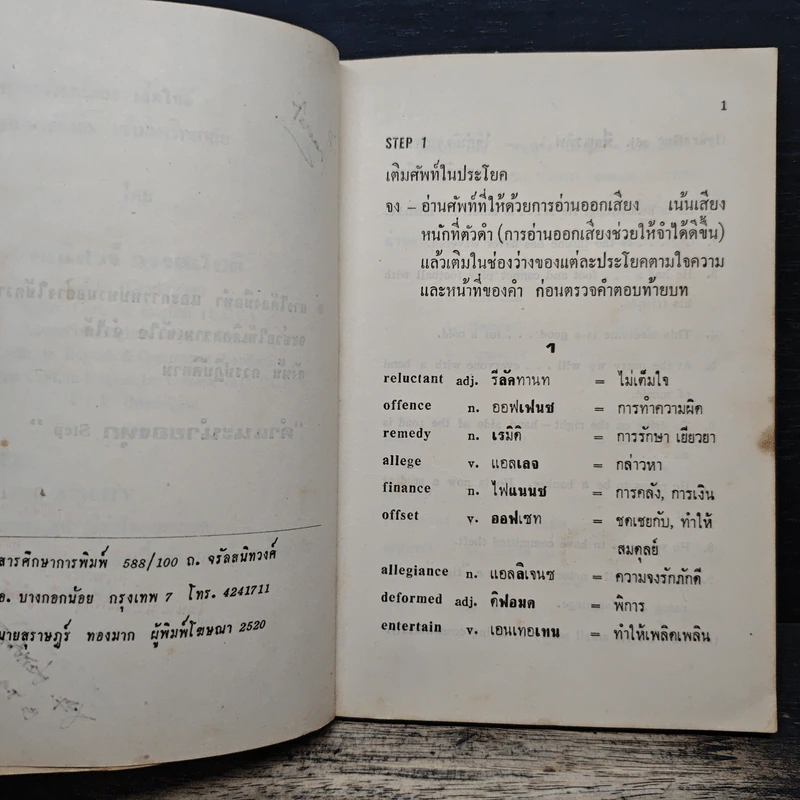 สารศึกษาการพิมพ์ 588/100 ถ. จรัลสนิทวงศ์
อ. บางกอกน้อย กรุงเทพ 7 โทร. 4241711
นายสุราษฎร์ ทองมาก ผู้พิมพ์โฆษณา 2520
1
STEP 1
เติมศัพท์ในประโยค
จง – อ่านศัพท์ที่ให้ด้วยการอ่านออกเสียง เน้นเสียง
หนักที่ตัวดำ (การอ่านออกเสียงช่วยให้จำได้ดีขึ้น)
แล้วเติมในช่องว่างของแต่ละประโยคตามใจความ
และหน้าที่ของคำ ก่อนตรวจคำตอบท้ายบท
1
reluctant adj. รีลัคทานท = ไม่เต็มใจ
offence n. ออฟเฟนซ = การทำความผิด
remedy n. เรมิดิ = การรักษา เยียวยา
allege v. แอลเลจ = กล่าวหา
finance n. ไฟแนนซ = การคลัง, การเงิน
offset v. ออฟเซท = ชดเชยกับ, ทำให้
สมดุลย์
allegiance n. แอลลิเจนซ = ความจงรักภักดี
deformed adj. ดิฟอมด = พิการ
entertain v. เอนเทอเทน = ทำให้เพลิดเพลิน